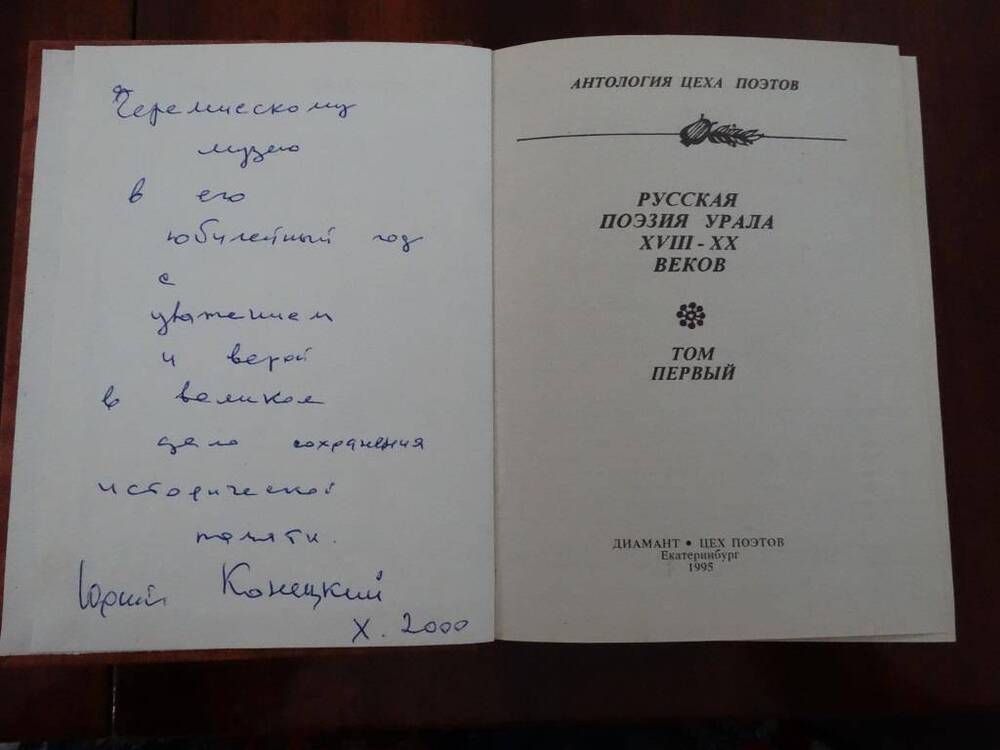 Черемисскому
музею
в его
юбилейный год
с
уважением
и верой
в великое
дело сохранения
исторической
памяти.
Юрий Конецкий
X. 2000
АНТОЛОГИЯ ЦЕХА ПОЭТОВ
РУССКАЯ
ПОЭЗИЯ УРАЛА
XVIII - XX
ВЕКОВ
ТОМ
ПЕРВЫЙ
ДИАМАНТ • ЦЕХ ПОЭТОВ
Екатеринбург
1995